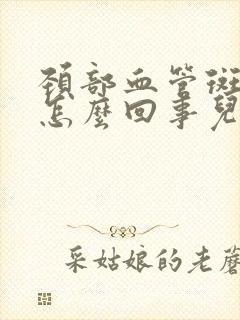 頚部血管斑
怎麼回事兒
采姑娘的老蘑